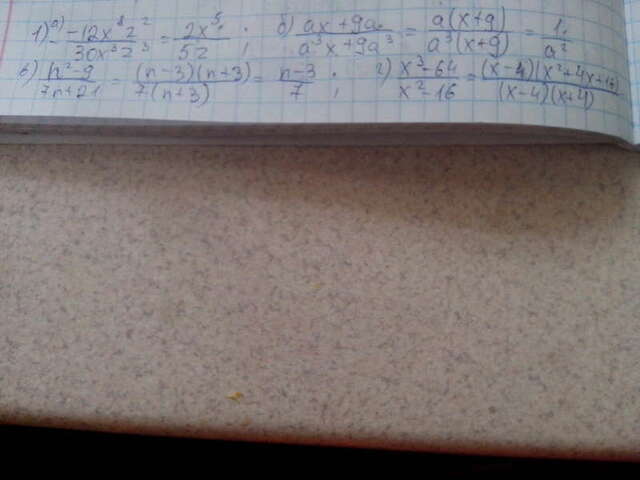 1) а) - -12x⁸z² / 30x³z³ = 2x⁵ / 5z ; б) ax+9a / a³x+9a³ = a(x+9) / a³(x+9) = 1 / a²
в) n²-9 / 7n+21 = (n-3)(n+3) / 7(n+3) = n-3 / 7 ; г) x³-64 / x²-16 = (x-4)(x²+4x+16) / (x-4)(x+4)